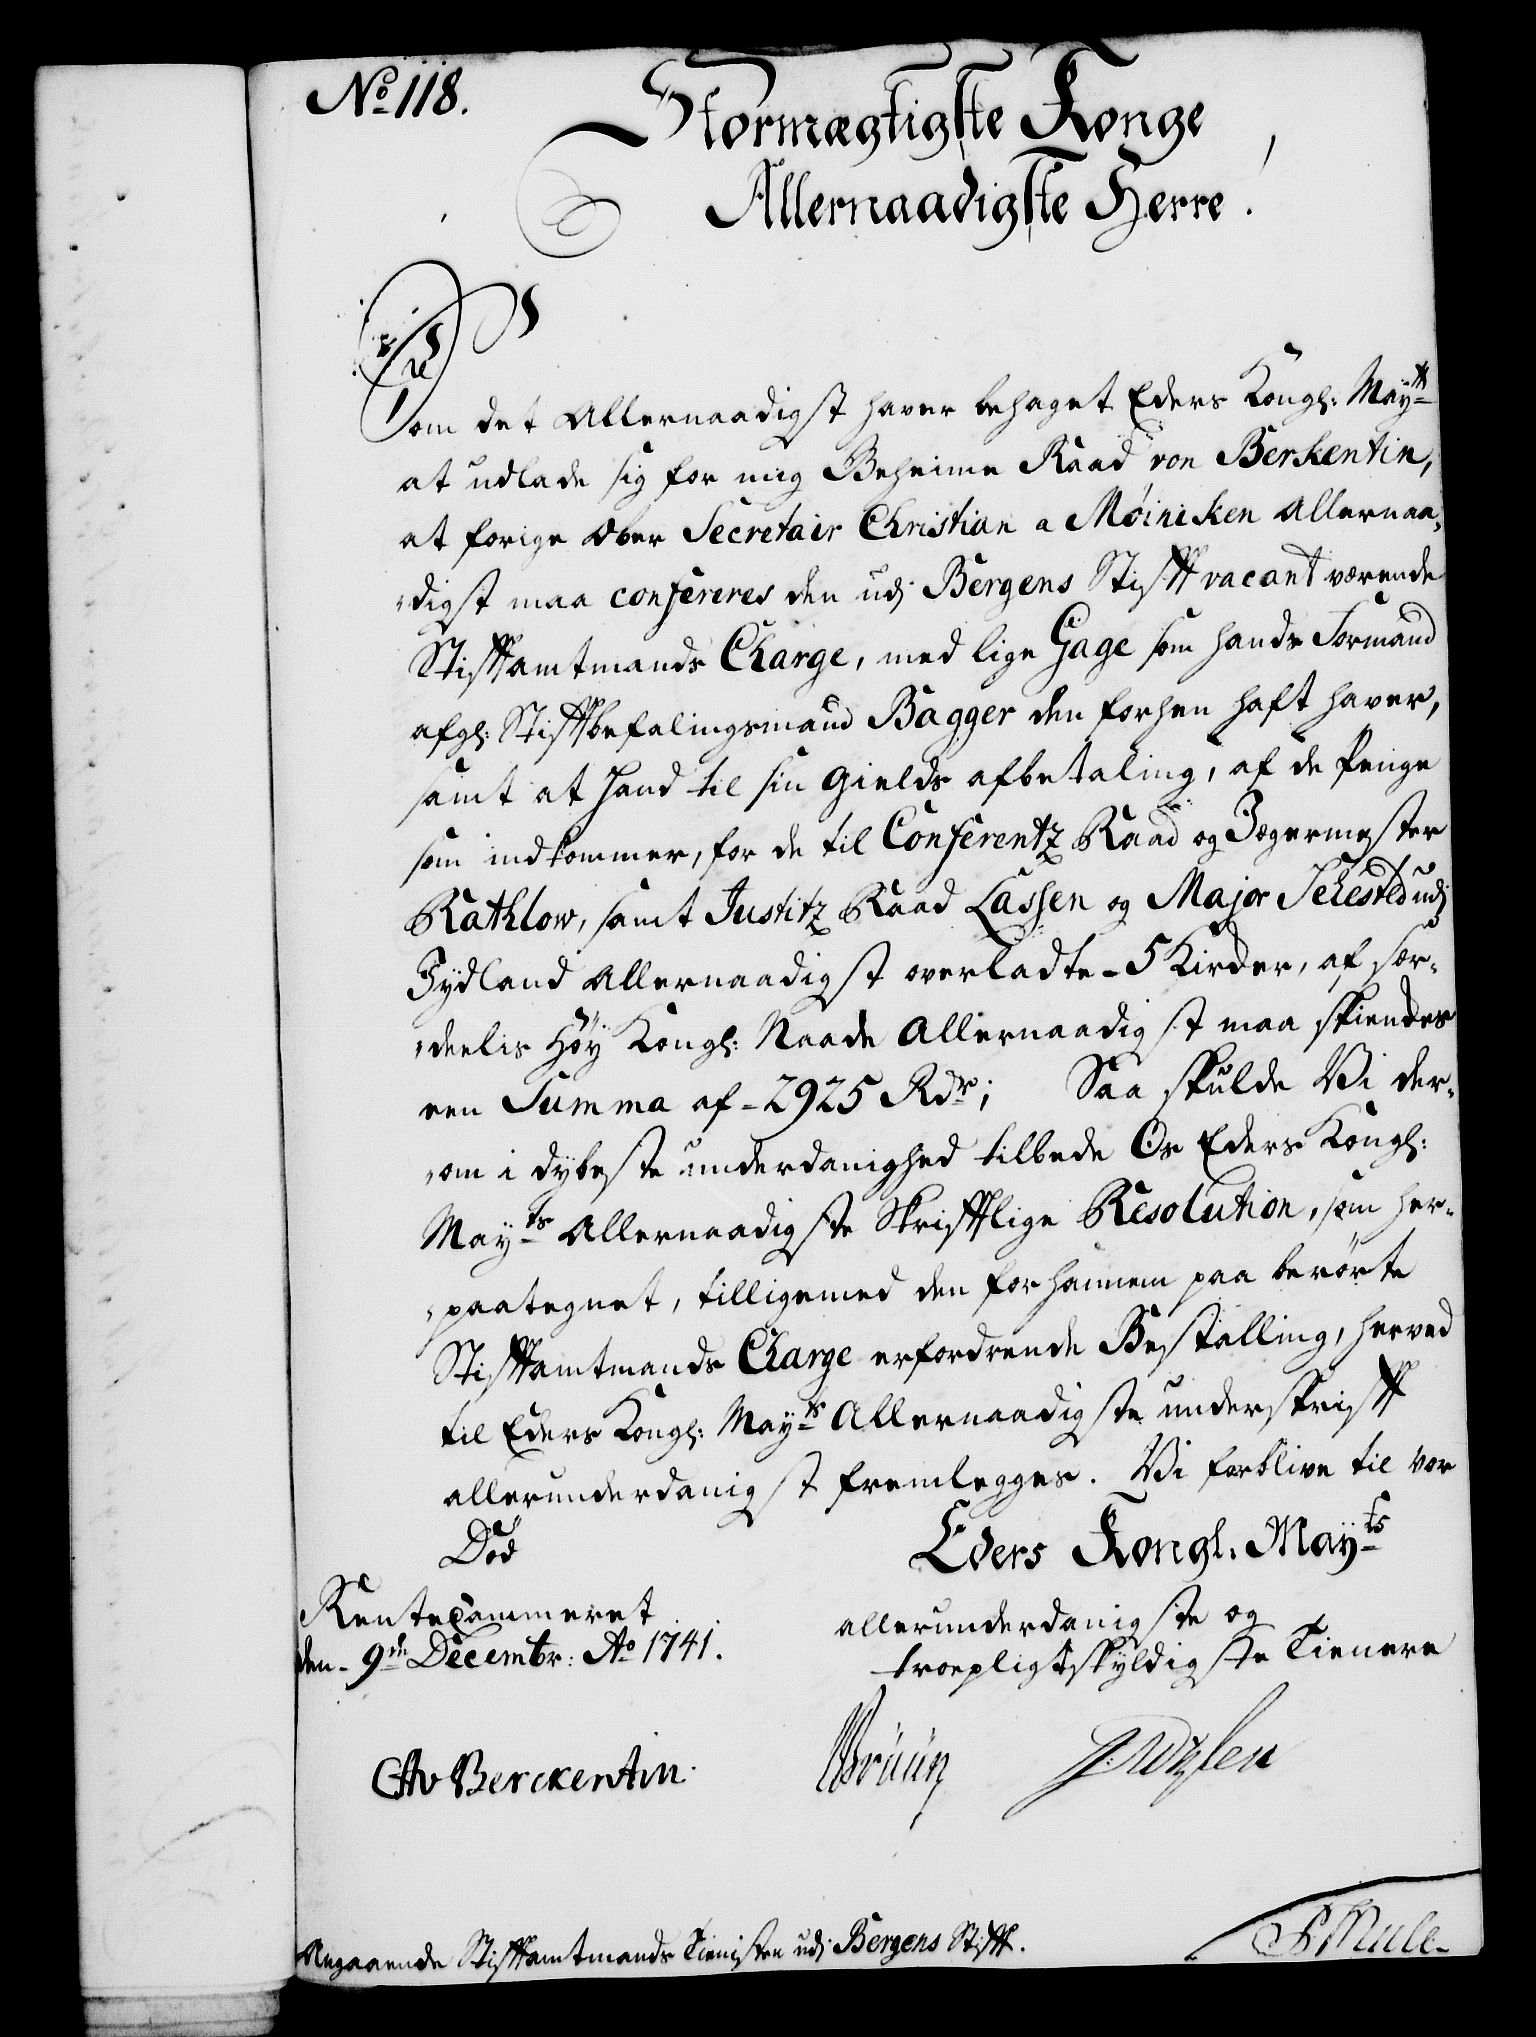 No 118.
Stormægtigste Konge
Allernaadigste Herre!
Som det Allernaadigst haver behaget Eders Kongl: Maytt
at udlade sig for mig Geheime Raad von Berkentin,
at forige Ober Secretair Christian a Møiniken Allernaa-
digst maa confereres den udj Bergens Stifft vacant værende
Stifftamtmands Charge, med lige Gage som hands Formand
afgl: Stifftbefalingsmand Bagger den forhen haft haver,
samt at Hand til sin Gields afbetaling, af de Penge
som indkommer, for de til Conferentz Raad og Jægermester
Rathlow, samt Justitz Raad Lassen og Major Sehested udj
Jydland Allernaadigst overladte - 5 Kircker, af sær-
deelis Høy Kongl: Naade Allernaadigst maa skienckes
een Summa af - 2925 Rdr; Saa skulde Vi der-
om i dybeste underdanighed tilbede Os Eders Kongl:
Mayts Allernaadigste Skrifftlige Resolution, som her-
paategnet, tilligemed den for hannem paa berørte
Stifftamtmands Charge erfordrende Bestalling, herved
til Eders Kongl: Mayts Allernaadigste underskrifft
allerunderdanigst fremlegges. Vi forblive til vor
Død
Eders Kongl. Mayts
Rentecammeret
den - 9de Decembr: Ao 1741.
allerunderdanigste og
troepligtskyldigste Tienere
CAv Berckentin.
Angaaende Stifftamtmands Tienisten udj Bergens Stifft.